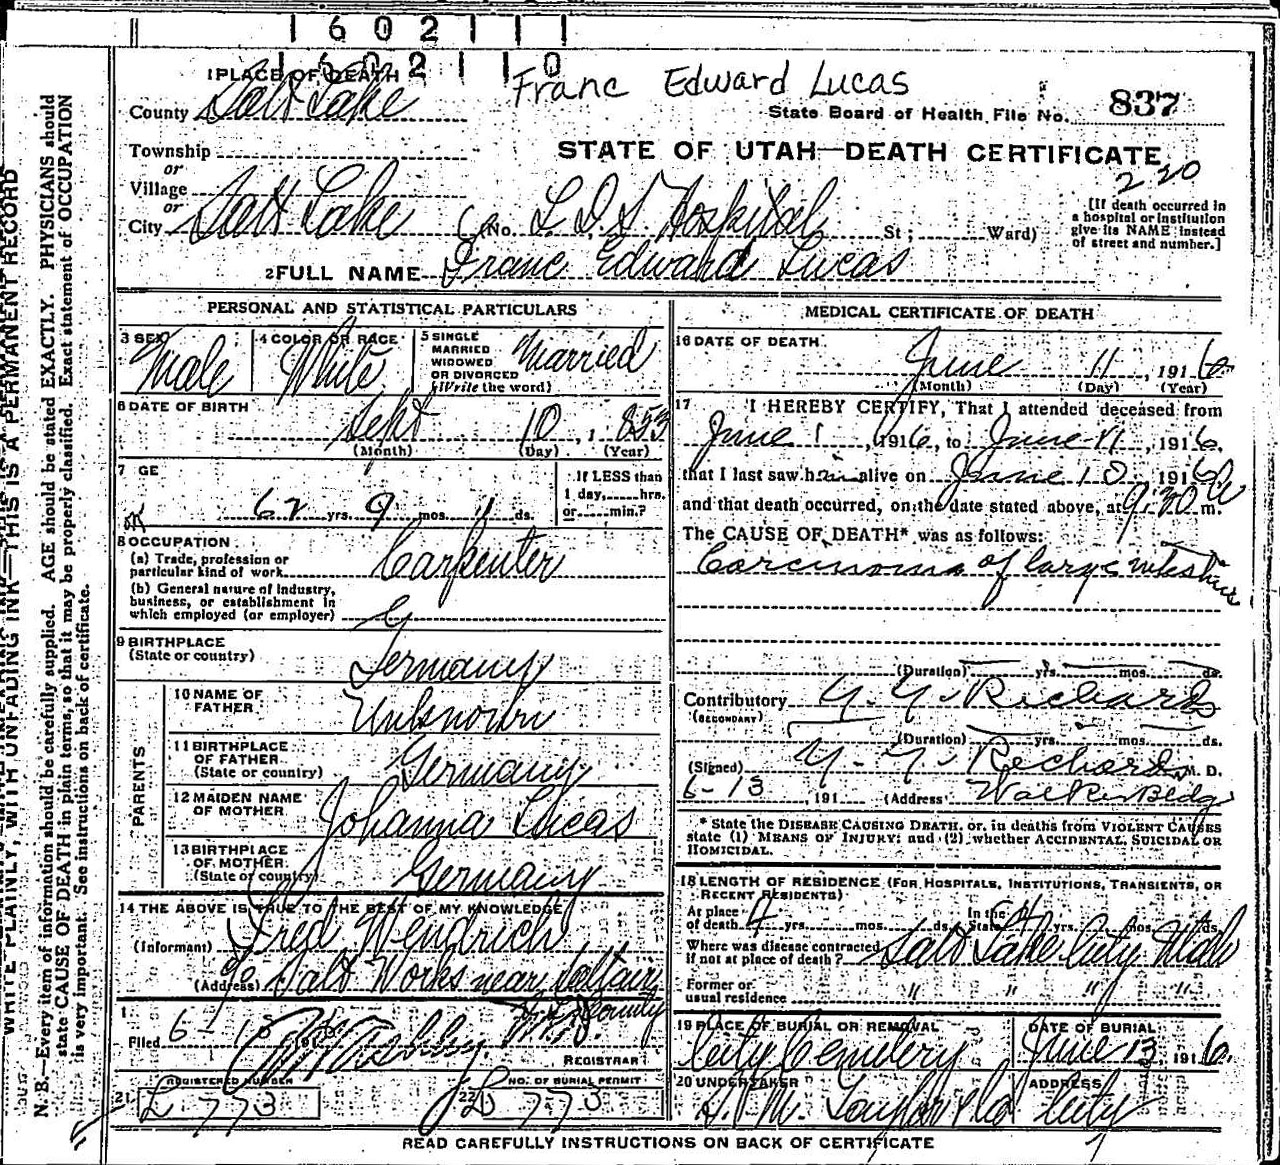 1602111
1602110
Franc Edward Lucas
1 PLACE OF DEATH
County Salt Lake
State Board of Health File No. 837
Township
STATE OF UTAH—DEATH CERTIFICATE
or
Village
220
or
City Salt Lake (No. L. D. S Hospital St; Ward)
[If death occurred in a hospital or institution give its NAME instead of street and number.]
2 FULL NAME Franc Edward Lucas
PERSONAL AND STATISTICAL PARTICULARS
3 SEX Male
4 COLOR OR RACE White
5 SINGLE MARRIED WIDOWED OR DIVORCED (Write the word) Married
6 DATE OF BIRTH
Sept 10, 1853
(Month) (Day) (Year)
7 GE
62 yrs. 9 mos. 1 ds.
If LESS than 1 day, hrs. or min.?
8 OCCUPATION
(a) Trade, profession or particular kind of work Carpenter
(b) General nature of industry, business, or establishment in which employed (or employer)
9 BIRTHPLACE
(State or country) Germany
PARENTS
10 NAME OF FATHER Unknown
11 BIRTHPLACE OF FATHER (State or country) Germany
12 MAIDEN NAME OF MOTHER Johanna Lucas
13 BIRTHPLACE OF MOTHER (State or country) Germany
14 THE ABOVE IS TRUE TO THE BEST OF MY KNOWLEDGE
(Informant) Fred Wendrich
(Address) c/o Salt Works near Saltair
S. L. County
Filed 6-13 191
REGISTRAR
REGISTERED NUMBER
21 L 773
NO. OF BURIAL PERMIT
22 D 773
MEDICAL CERTIFICATE OF DEATH
16 DATE OF DEATH
June 11, 1916
(Month) (Day) (Year)
17 I HEREBY CERTIFY, That I attended deceased from
June 1, 1916, to June 11, 1916,
that I last saw him alive on June 10 1916
and that death occurred, on the date stated above, at 9:30 a m.
The CAUSE OF DEATH* was as follows:
Carcinoma of large intestine
(Duration) yrs. mos. ds.
Contributory G. G. Richards
(SECONDARY)
(Duration) yrs. mos. ds.
(Signed) G. G. Richards, M. D.
6-13, 191 (Address) Walker Bldg
* State the DISEASE CAUSING DEATH, or, in deaths from VIOLENT CAUSES
state (1) MEANS OF INJURY; and (2) whether ACCIDENTAL, SUICIDAL OR
HOMICIDAL.
18 LENGTH OF RESIDENCE (FOR HOSPITALS, INSTITUTIONS, TRANSIENTS, OR
RECENT RESIDENTS)
At place of death 4 yrs. mos. ds. In the State 4 yrs. mos. ds.
Where was disease contracted if not at place of death? Salt Lake City Utah
Former or usual residence " " " "
19 PLACE OF BURIAL OR REMOVAL City Cemetery
DATE OF BURIAL June 13 1916.
20 UNDERTAKER S. M. Taylor & Co
ADDRESS City
READ CAREFULLY INSTRUCTIONS ON BACK OF CERTIFICATE
WRITE PLAINLY, WITH UNFADING INK—THIS IS A PERMANENT RECORD
N. B.—Every item of information should be carefully supplied. AGE should be stated EXACTLY. PHYSICIANS should
state CAUSE OF DEATH in plain terms, so that it may be properly classified. Exact statement of OCCUPATION
is very important. See instructions on back of certificate.